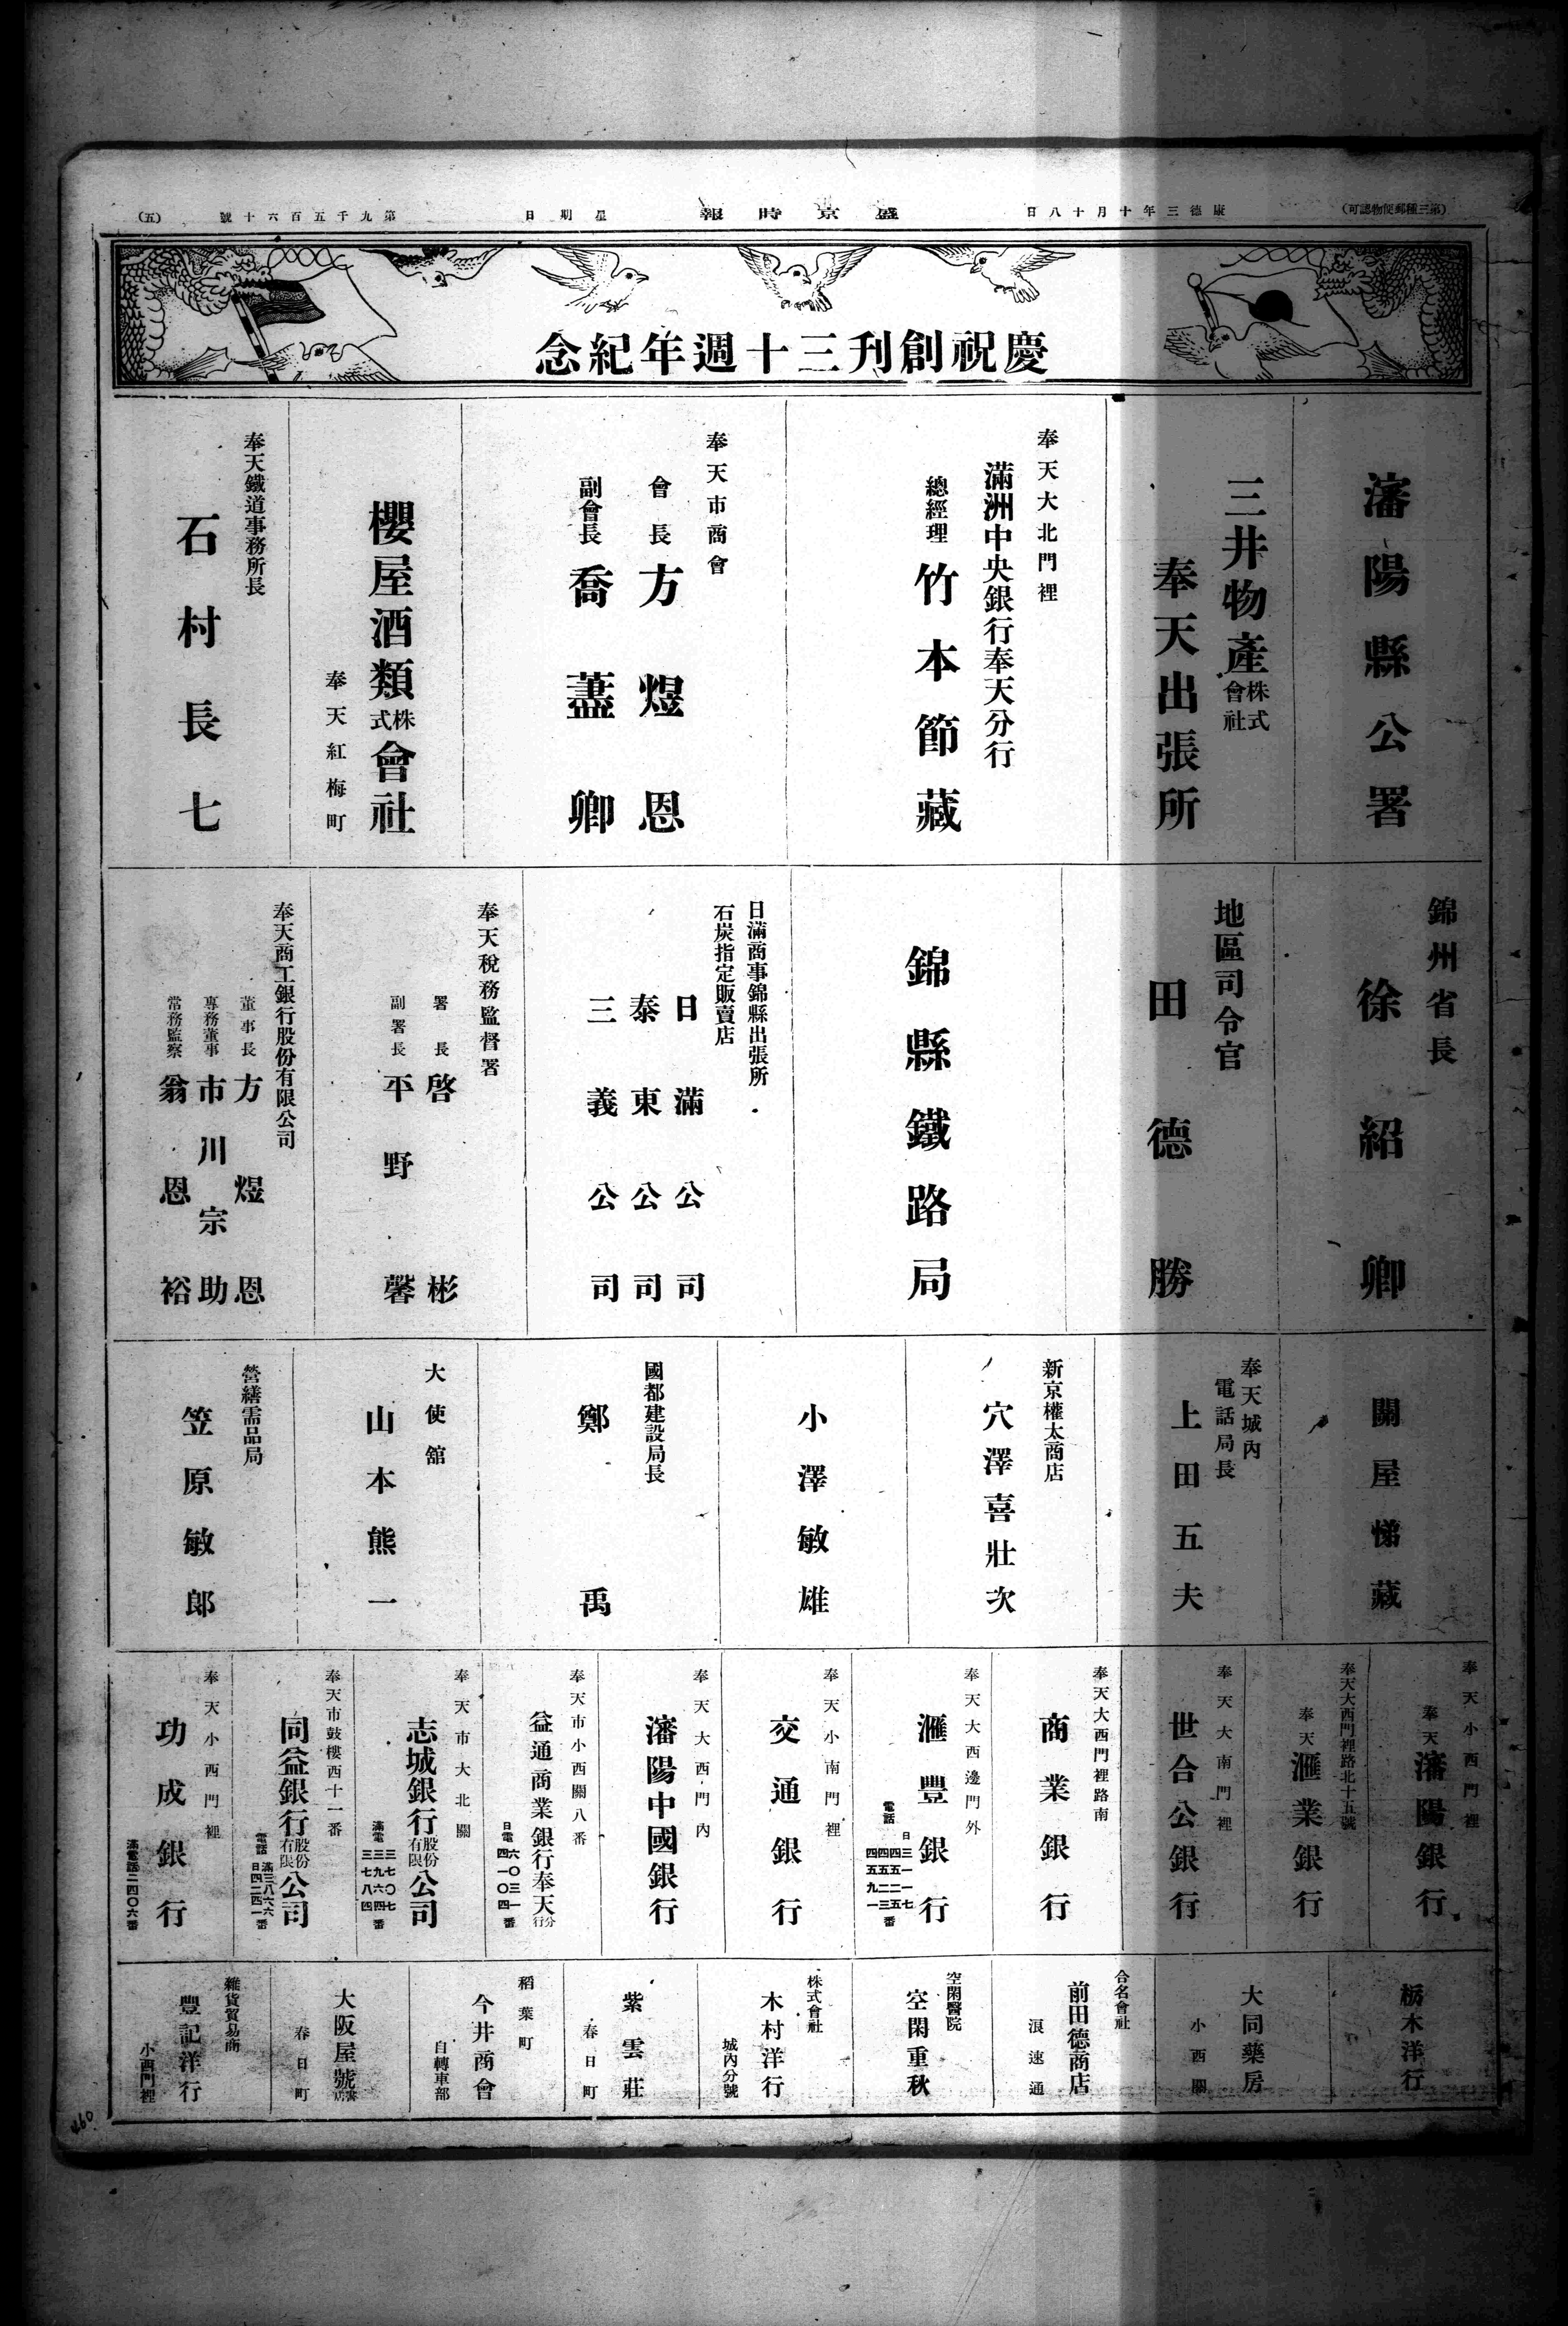 (第三種郵便物認可)
康德三年十月十八日
盛京時報
星期日
第九千五百六十號
(五)
慶祝創刊三十週年紀念
瀋陽縣公署
三井物產株式會社
奉天出張所
奉天大北門裡
滿洲中央銀行奉天分行
總經理 竹本節藏
奉天市商會
會長 方煜恩
副會長 喬藎卿
櫻屋酒類株式會社
奉天紅梅町
奉天鐵道事務所長
石村長七
錦州省長
徐紹卿
地區司令官
田德勝
錦縣鐵路局
日滿商事錦縣出張所
石炭指定販賣店
日滿公司
泰東公司
三義公司
奉天稅務監督署
署長 啓彬
副署長 平野馨
奉天商工銀行股份有限公司
董事長 方煜恩
專務董事 市川宗助
常務監察 翁恩裕
關屋悌藏
奉天城內
電話局長
上田五夫
新京權太商店
穴澤喜壯次
小澤敏雄
國都建設局長
鄭禹
大使舘
山本熊一
營繕需品局
笠原敏郎
奉天小西門裡
奉天瀋陽銀行
奉天大西門裡路北十五號
奉天滙業銀行
奉天大南門裡
世合公銀行
奉天大西門裡路南
商業銀行
奉天大西邊門外
滙豐銀行
電話
奉天小南門裡
交通銀行
奉天大西門內
瀋陽中國銀行
奉天市小西關八番
益通商業銀行奉天分行
日電 六〇三一
四一〇〇四番
奉天市大北關
志城銀行股份有限公司
滿電 三七〇七
三九六四
三七八四番
奉天市鼓樓西十一番
同益銀行股份有限公司
電話 滿三八六六
日四二四一番
奉天小西門裡
功成銀行
滿電話二四〇六番
栃木洋行
大同藥房
小西關
合名會社
前田德商店
浪速通
空閑醫院
空閑重秋
株式會社
木村洋行
城內分號
紫雲莊
春日町
稻葉町
今井商會
自轉車部
大阪屋號
春日町
雜貨貿易商
豐記洋行
小西門裡